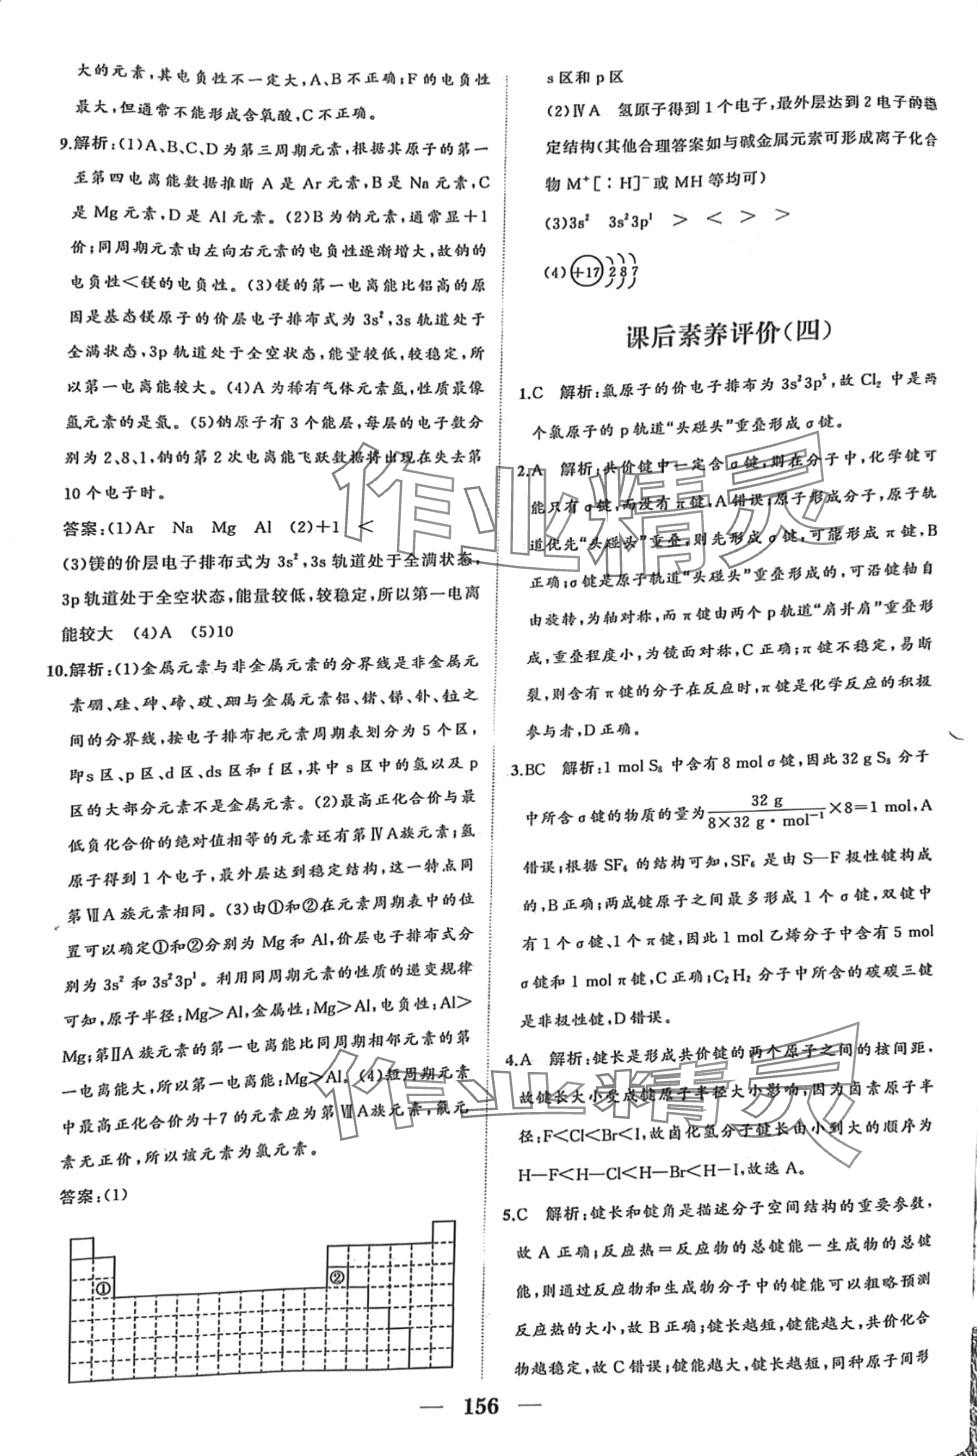 大的元素，其电负性不一定大，A、B不正确；F的电负性
最大，但通常不能形成含氧酸，C不正确。
9.解析：(1)A、B、C、D为第三周期元素，根据其原子的第一
至第四电离能数据推断A是Ar元素，B是Na元素，C
是Mg元素，D是Al元素。(2)B为钠元素，通常显+1
价；同周期元素由左向右元素的电负性逐渐增大，故钠的
电负性<镁的电负性。(3)镁的第一电离能比铝高的原
因是基态镁原子的价层电子排布式为3s²，3s轨道处于
全满状态，3p轨道处于全空状态，能量较低，较稳定，所
以第一电离能较大。(4)A为稀有气体元素氩，性质最像
氩元素的是氩。(5)钠原子有3个能层，每层的电子数分
别为2、8、1，钠的第2次电离能飞跃数据将出现在失去第
10个电子时。
答案：(1)Ar Na Mg Al (2)+1 <
(3)镁的价层电子排布式为3s²，3s轨道处于全满状态，
3p轨道处于全空状态，能量较低，较稳定，所以第一电离
能较大 (4)A (5)10
10.解析：(1)金属元素与非金属元素的分界线是非金属元
素硼、硅、砷、碲、砹、硼与金属元素铝、锗、锑、钋、𬭊之
间的分界线，按电子排布把元素周期表划分为5个区，
即s区、p区、d区、ds区和f区，其中s区的氢以及p
区的大部分元素不是金属元素。(2)最高正化合价与最
低负化合价的绝对值相等的元素还有第ⅣA族元素；氢
原子得到1个电子，最外层达到稳定结构，这一特点同
第ⅦA族元素相同。(3)由①和②在元素周期表中的位
置可以确定①和②分别为Mg和Al，价层电子排布式分
别为3s²和3s²3p¹。利用同周期元素的性质的递变规律
可知，原子半径：Mg>Al，金属性：Mg>Al，电负性：Al>
Mg；第ⅡA族元素的第一电离能比同周期相邻元素的第
一电离能大，所以第一电离能：Mg>Al。(4)短周期元素
中最高正化合价为+7的元素应为第ⅦA族元素，氟元
素无正价，所以该元素为氯元素。
答案：(1)
①
②
s区和p区
(2)ⅣA 氢原子得到1个电子，最外层达到2电子的稳
定结构(其他合理答案如与碱金属元素可形成离子化合
物M⁺[∶H]⁻或MH等均可)
(3)3s² 3s²3p¹ > < > >
(4) +17 2 8 7
课后素养评价(四)
1.C 解析：氯原子的价电子排布为3s²3p⁵，故Cl₂中是两
个氯原子的p轨道“头碰头”重叠形成σ键。
2.A 解析：共价键中一定含σ键，则在分子中，化学键可
能只有σ键，而没有π键，A错误；原子形成分子，原子轨
道优先“头碰头”重叠，则先形成σ键，可能形成π键，B
正确；σ键是原子轨道“头碰头”重叠形成的，可沿键轴自
由旋转，为轴对称，而π键由两个p轨道“肩并肩”重叠形
成，重叠程度小，为镜面对称，C正确；π键不稳定，易断
裂，则含有π键的分子在反应时，π键是化学反应的积极
参与者，D正确。
3.BC 解析：1 mol S₈中含有8 mol σ键，因此32 g S₈分子
中所含σ键的物质的量为 32 g/(8×32 g·mol⁻¹) ×8=1 mol，A
错误；根据SF₆的结构可知，SF₆是以S—F极性键构成
的，B正确；两成键原子之间最多形成1个σ键，双键中
有1个σ键、1个π键，因此1 mol乙烯分子中含有5 mol
σ键和1 mol π键，C正确；C₂H₂分子中所含的碳碳三键
是非极性键，D错误。
4.A 解析：键长是形成共价键的两个原子之间的核间距，
故键长大小受成键原子半径大小影响，因为卤素原子半
径：F<Cl<Br<I，故卤化氢分子键长由小到大的顺序为
H—F<H—Cl<H—Br<H—I，故选A。
5.C 解析：键长和键角是描述分子空间结构的重要参数，
故A正确；反应热=反应物的总键能−生成物的总键
能，则通过反应物和生成物分子中的键能可以粗略预测
反应热的大小，故B正确；键长越短，键能越大，共价化合
物越稳定，故C错误；键能越大，键长越短，同种原子间形
作业精灵
作业精灵
— 156 —